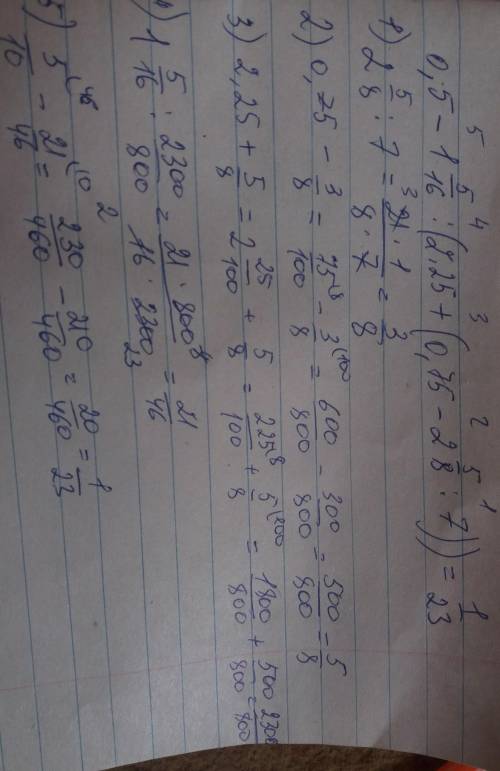 5 4 3 2 1
0,5 - 1 5/16 : (2,25 + (0,75 - 2 5/8 : 7)) = 1/23
1) 2 5/8 : 7 = 21³ · 1 / 8 · 7 = 3/8
2) 0,75 - 3/8 = 75⁽⁸/100 - 3⁽¹⁰⁰/8 = 600/800 - 300/800 = 500/800 = 5/8
3) 2,25 + 5/8 = 2 25/100 + 5/8 = 225⁽⁸/100 + 5⁽¹⁰⁰/8 = 1800/800 + 500/800 = 2300/800
1 5/16 : 2300/800 = 21 · 800 / 16 · 2300 23 = 21/46
5) 5⁽⁴⁶/10 - 21⁽¹⁰/46 = 230/460 - 210/460 = 20/460 = 1/23